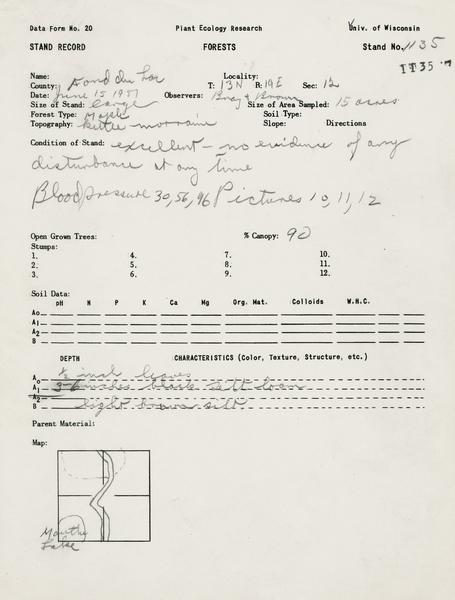 Data Form No. 20 Plant Ecology Research Univ. of Wisconsin
STAND RECORD FORESTS Stand No. 1135
Name: Locality:
County: Fond du Lac T: 13N R: 19E Sec: 12
Date: June 15 1951 Observers: Bray & Brown
Size of Stand: large Size of Area Sampled: 15 acres
Forest Type: Maple Soil Type:
Topography: kettle morrain Slope: Directions
Condition of Stand: excellent - no evidence of any
disturbance at any time
Blood pressure 30, 56, 96 Pictures 10, 11, 12
Open Grown Trees: % Canopy: 90
Stumps:
1. 4. 7. 10.
2. 5. 8. 11.
3. 6. 9. 12.
Soil Data:
pH N P K Ca Mg Org. Mat. Colloids W.H.C.
A₀
A₁
A₂
B
DEPTH CHARACTERISTICS (Color, Texture, Structure, etc.)
A₀ ½ inch leaves
A₁ 3-6 inches black silt loam
A₂
B light brown silt
Parent Material:
Map:
Mauthe
Lake